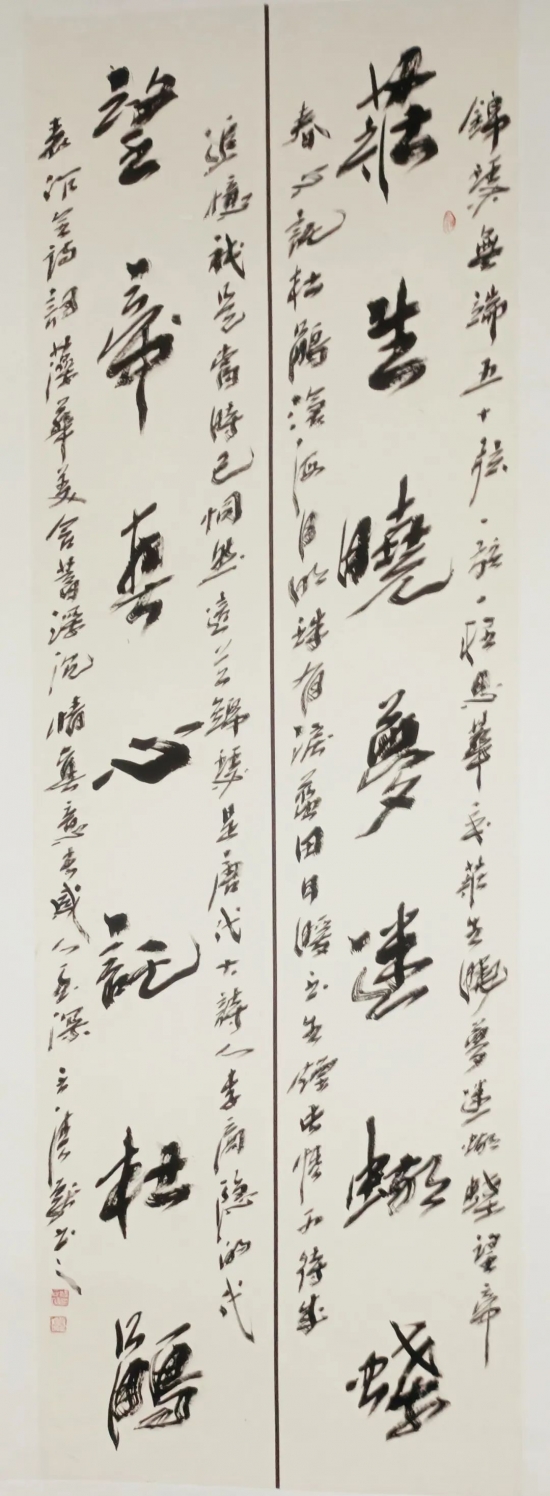 錦瑟無端五十弦一弦一柱思華年莊生曉夢迷蝴蝶望帝
莊生曉夢迷蝴蝶
春心託杜鵑滄海月明珠有淚藍田日暖玉生煙此情可待成
追憶祇是當時已惘然這首錦瑟是唐代大詩人李商隱的代
望帝春心託杜鵑
表作全詩詞藻華美含蓄深沉情真意長感人至深書之